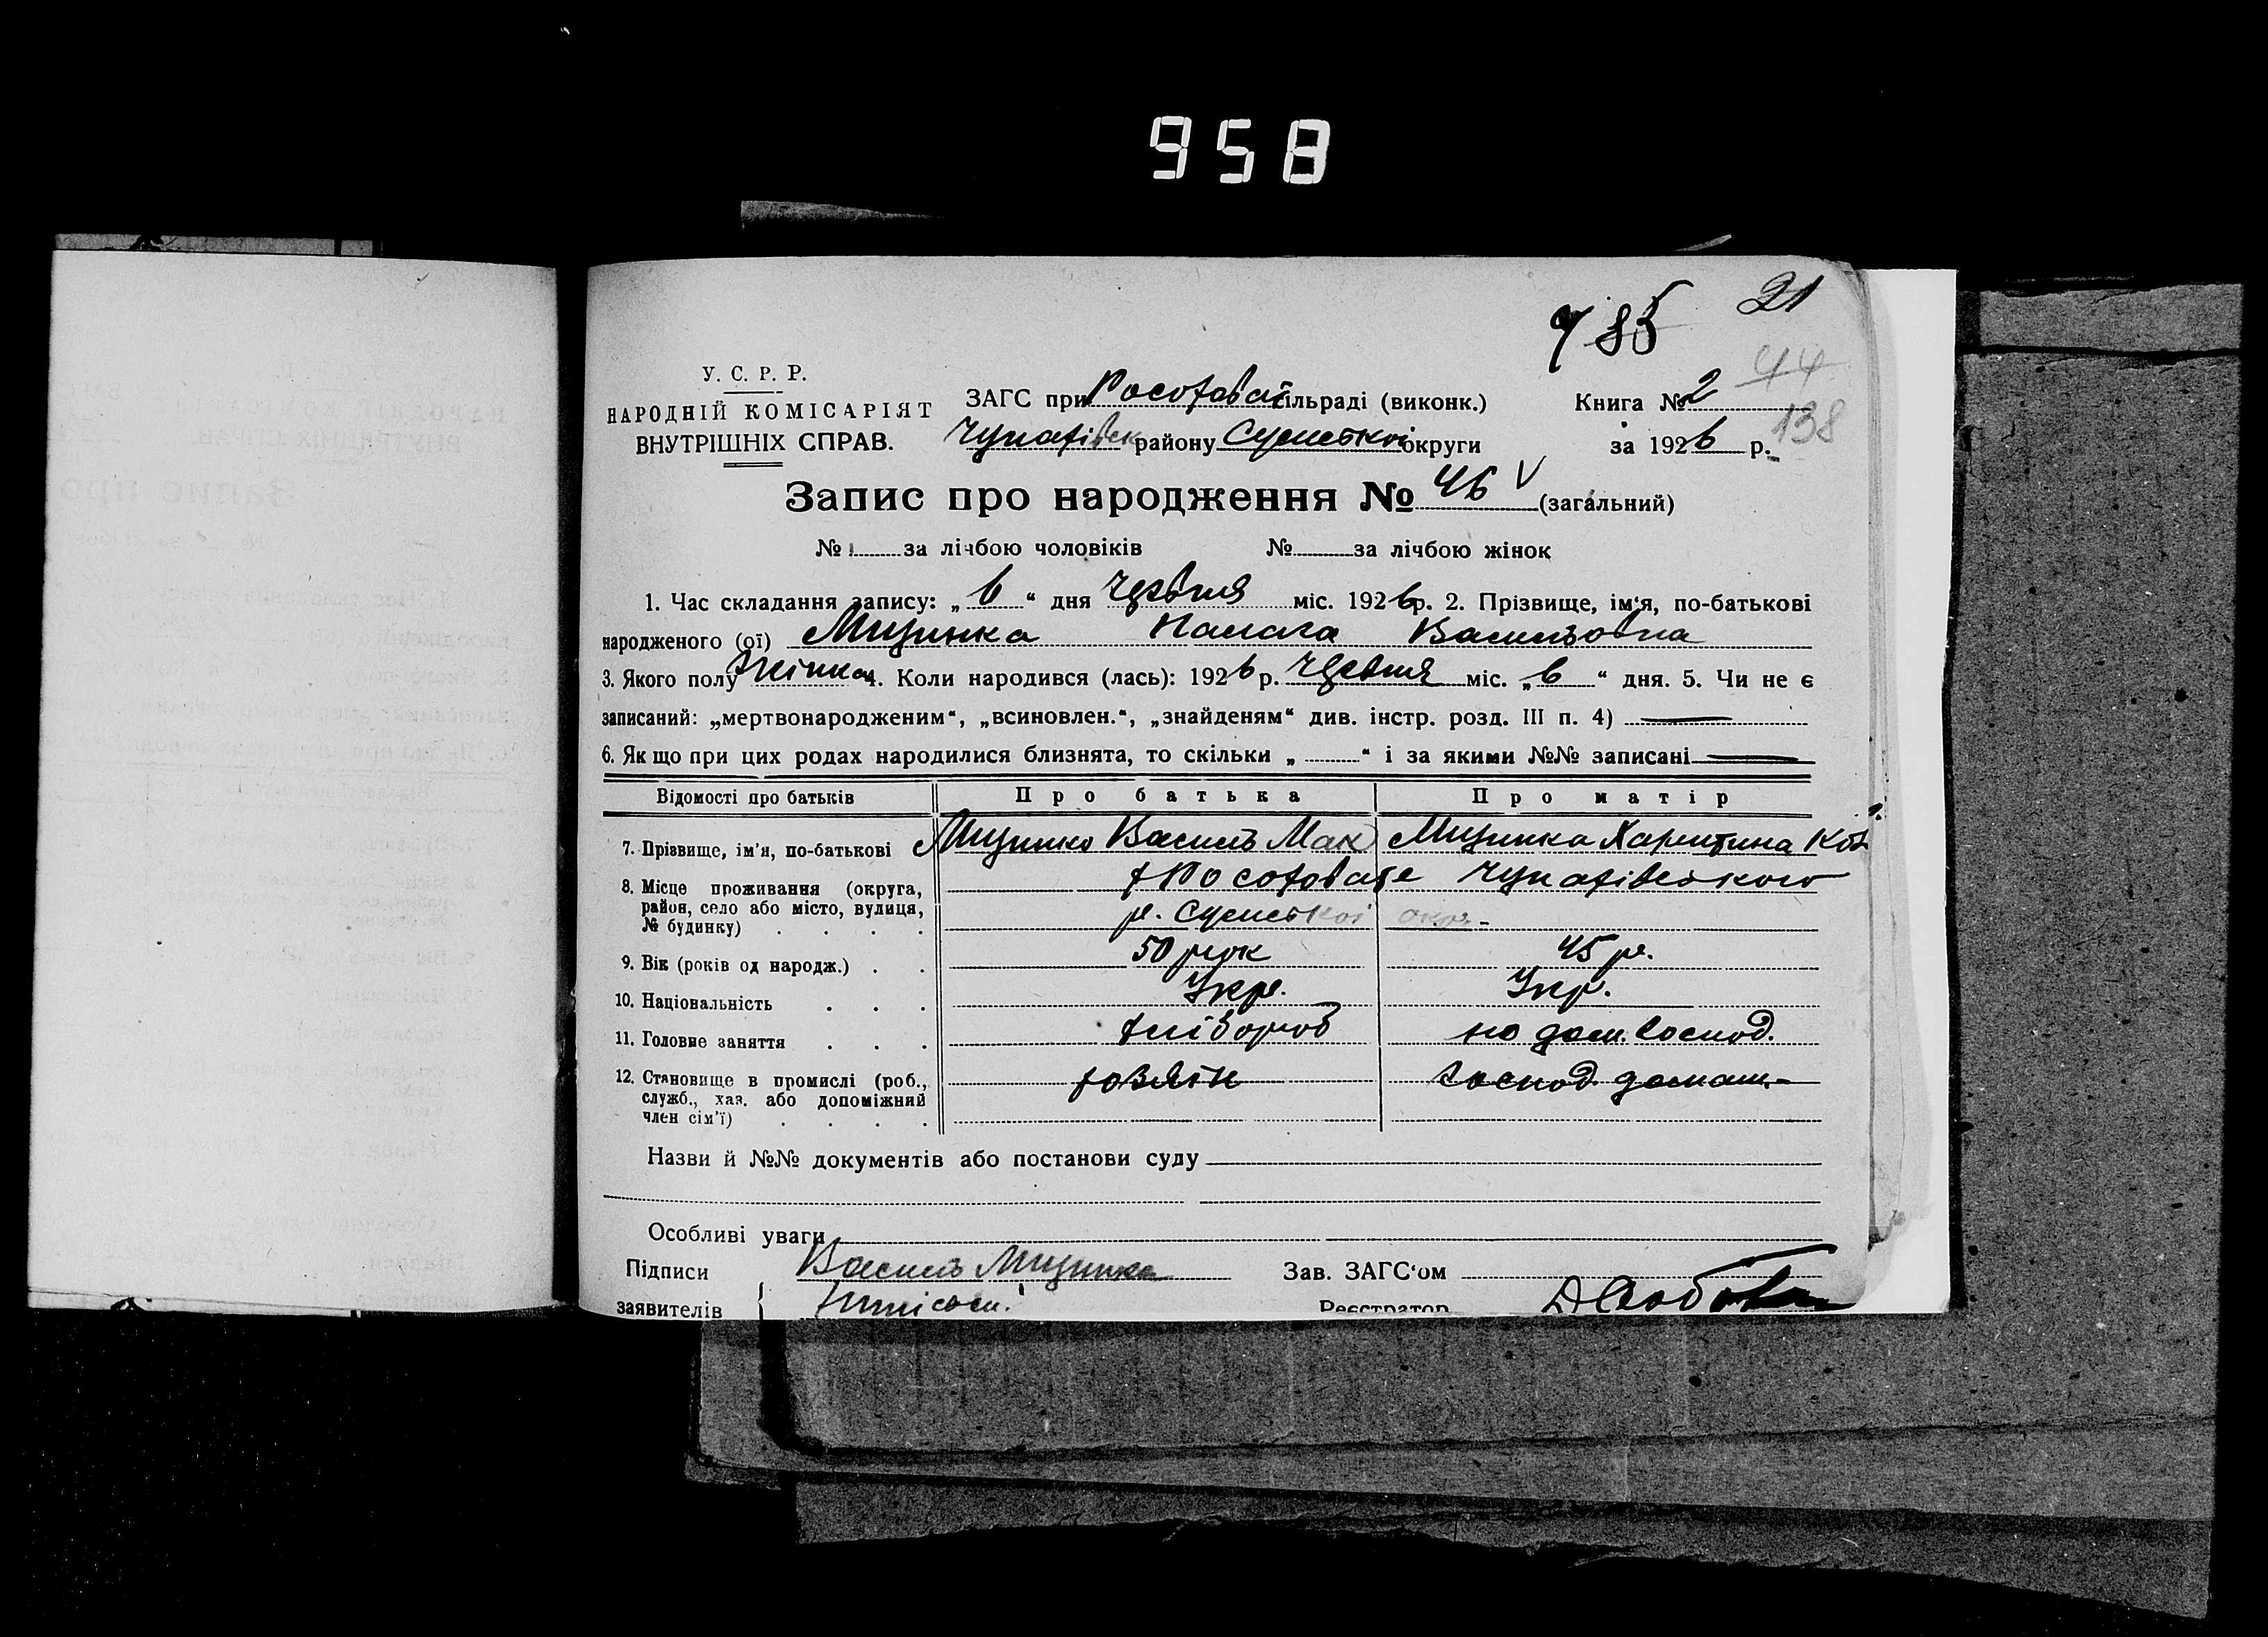 958
21
785
44
138
У. С. Р. Р.
НАРОДНІЙ КОМІСАРІЯТ
ВНУТРІШНІХ СПРАВ.
ЗАГС при сільраді (виконк.)
району Сумської округи
Книга № 2
за 1926 р.
Запис про народження № 46 (загальний)
№ за лічбою чоловіків № за лічбою жінок
1. Час складання запису: „6“ дня Червня міс. 1926 р. 2. Прізвище, ім‘я, по-батькові
народженого (ої) Мизинка Палага Васильовна
3. Якого полу жінка 4. Коли народився (лась): 1926 р. Червня міс. „6“ дня. 5. Чи не є
записаний: „мертвонародженим“, „всиновлен.“, „знайденям“ див. інстр. розд. III п. 4)
6. Якщо при цих родах народилися близнята, то скільки „ “ і за якими №№ записані
Відомості про батьків Про батька Про матір
7. Прізвище, ім'я, по-батькові Василь Мак Мизинка Харитина
8. Місце проживання (округа,
район, село або місто, вулиця,
№ будинку)
р. Сумської окр.
9. Вік (років од народж.) 50 рок 45 р.
10. Національність Укр. Укр.
11. Головне заняття хлібороб по дом. господ.
12. Становище в промислі (роб.,
служб., хаз. або допоміжний
член сім'ї)
господ. домаш.
Назви й №№ документів або постанови суду
Особливі уваги
Підписи Василь Мизинка Зав. ЗАГС‘ом
заявителів Реєстратор